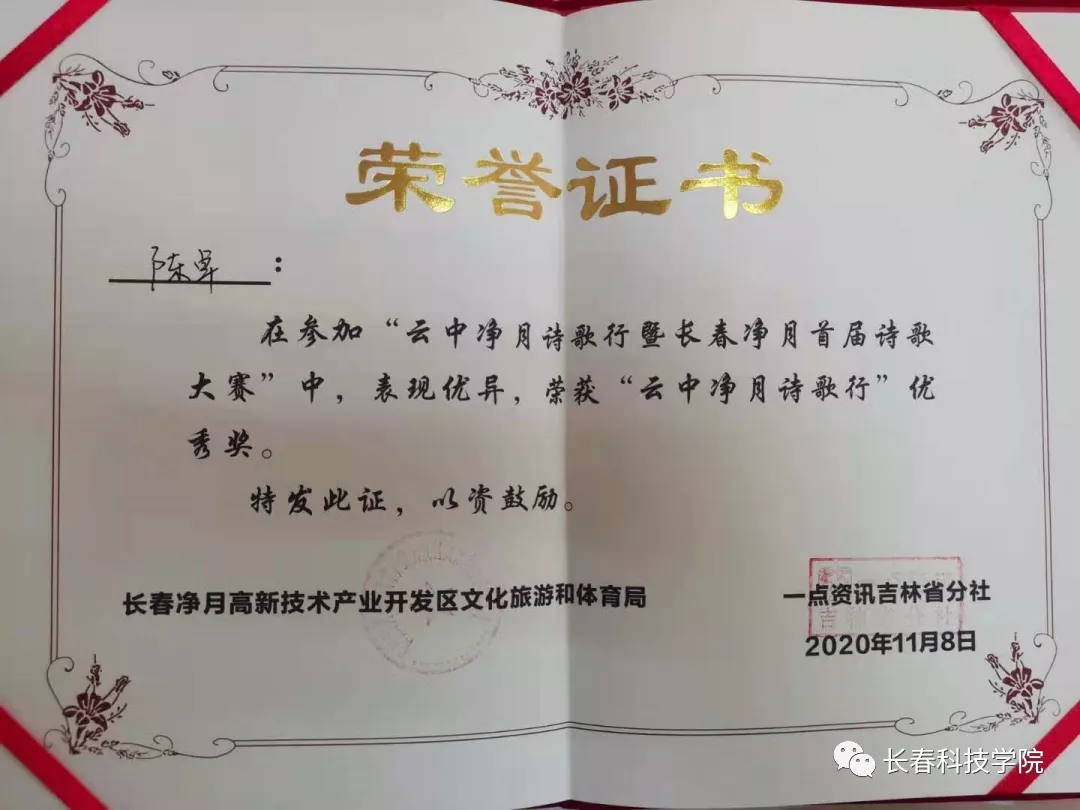 荣誉证书
陈卓：
在参加“云中净月诗歌行暨长春净月首届诗歌
大赛”中，表现优异，荣获“云中净月诗歌行”优
秀奖。
特发此证，以资鼓励。
长春净月高新技术产业开发区文化旅游和体育局
一点资讯吉林省分社
2020年11月8日
长春科技学院